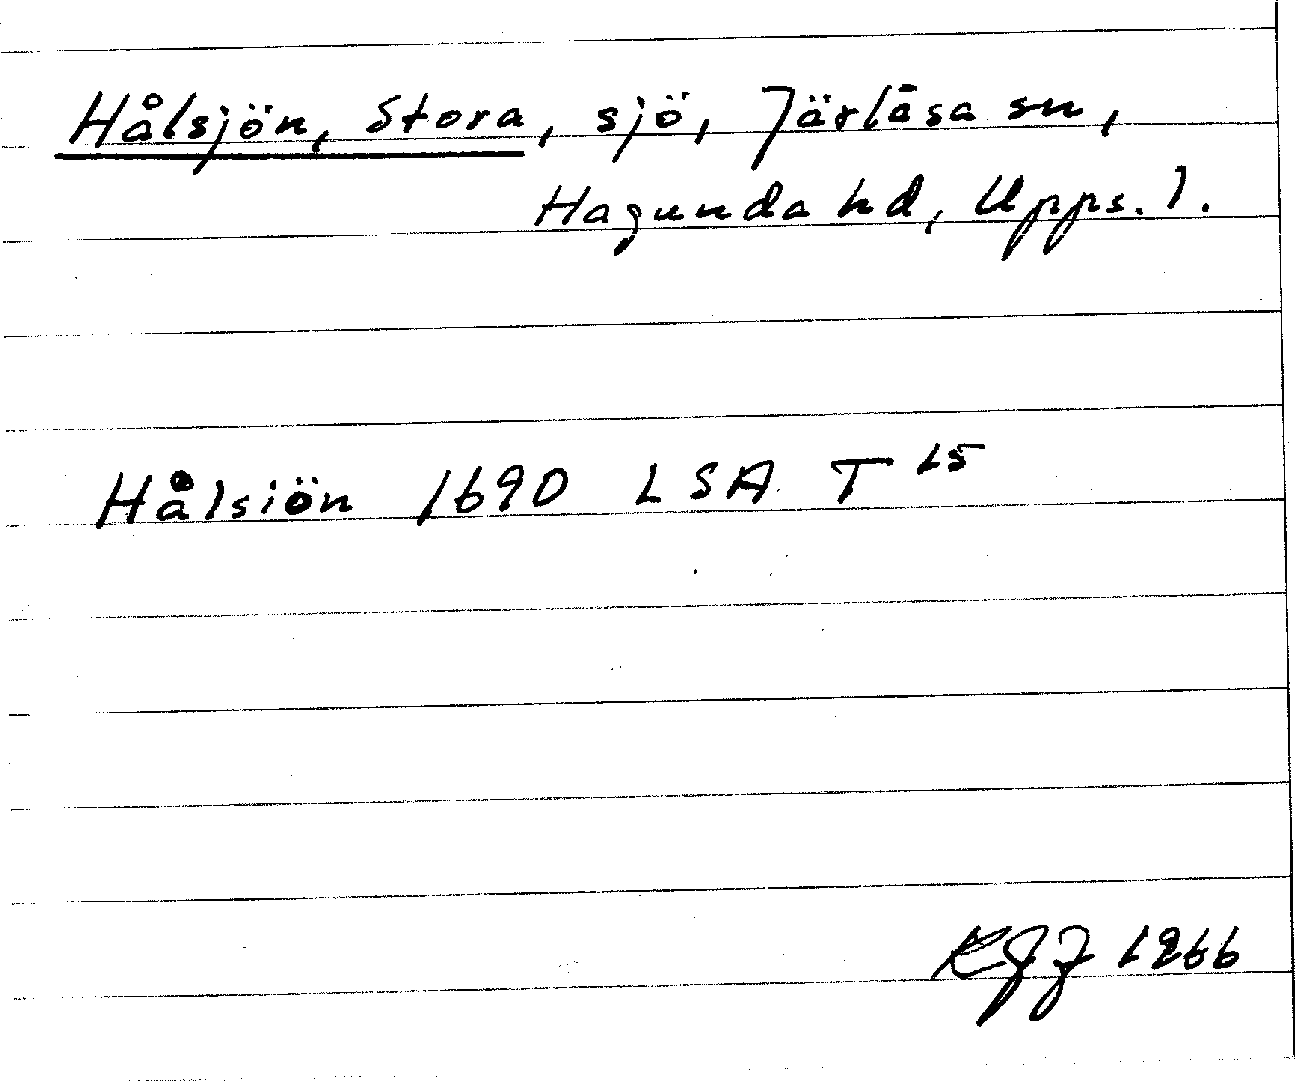 Hålsjön, Stora, sjö, Järlåsa sn,
Hagunda hd, Upps. l.
Hålsiön 1690 LSA T 15
1966